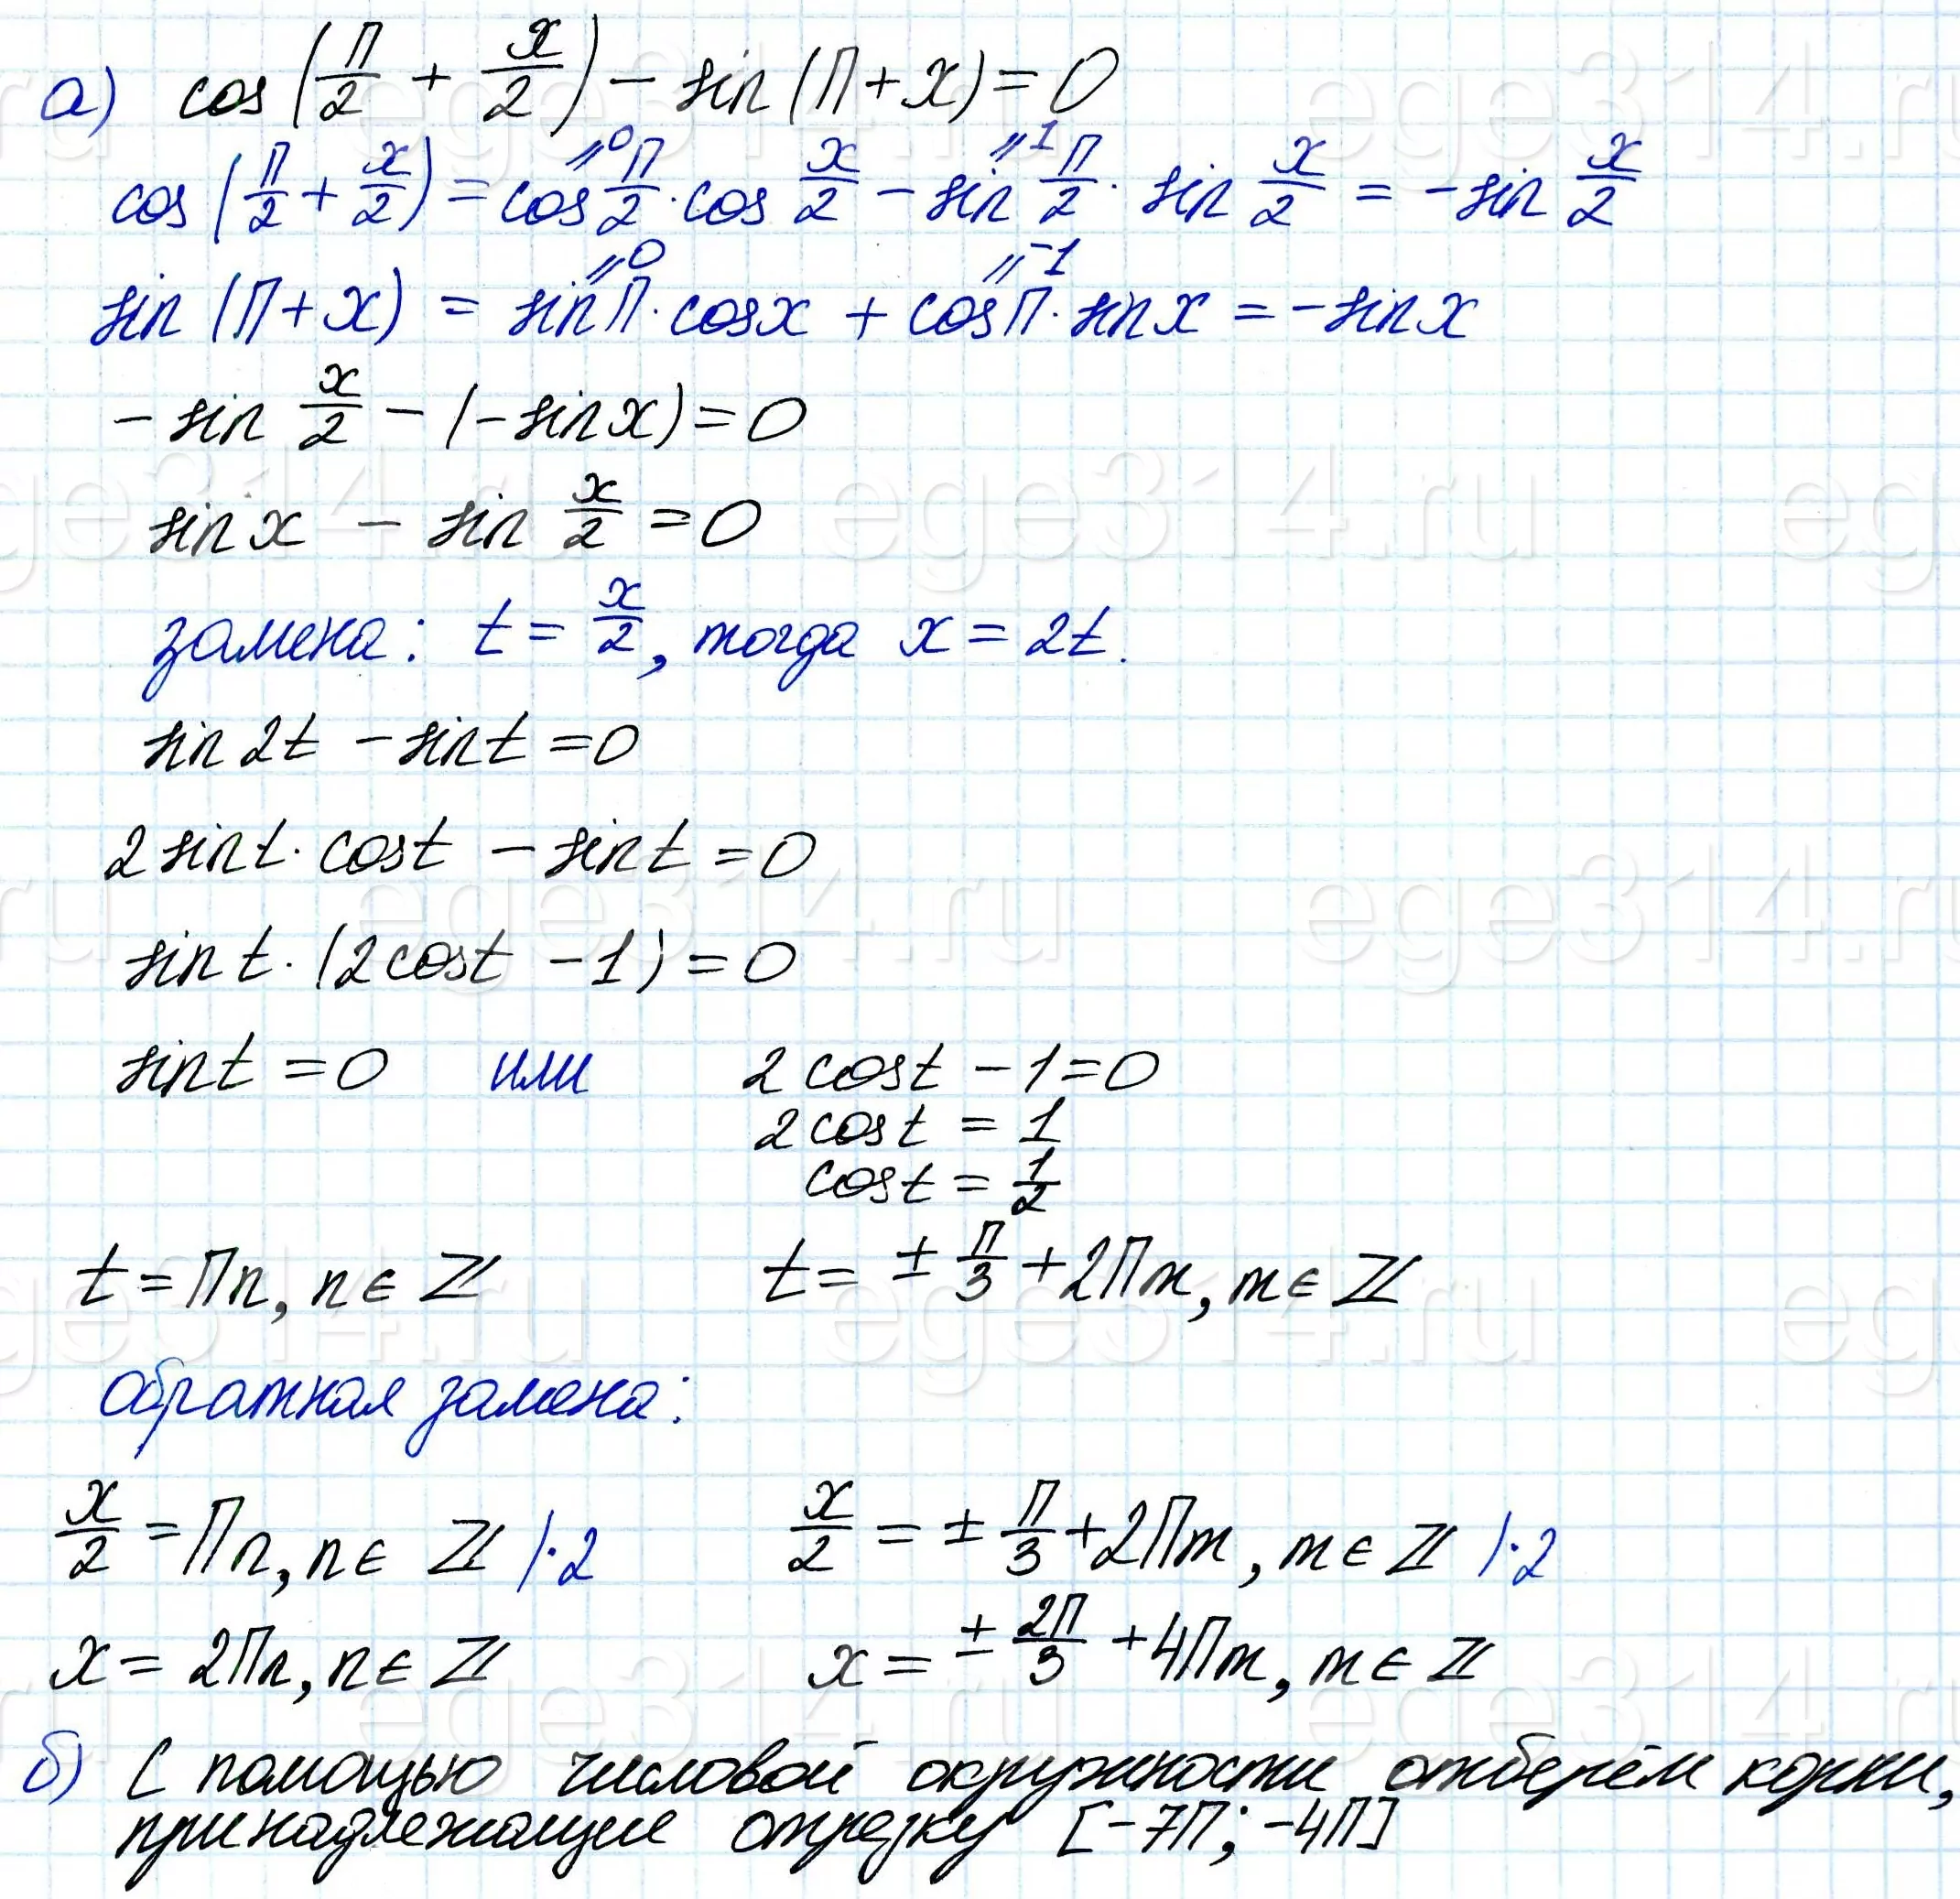 а) cos(π/2 + x/2) − sin(π+x) = 0
cos(π/2 + x/2) = cos π/2 · cos x/2 − sin π/2 · sin x/2 = −sin x/2
=0 =1
sin(π+x) = sin π · cos x + cos π · sin x = −sin x
=0 =−1
−sin x/2 − (−sin x) = 0
sin x − sin x/2 = 0
замена: t = x/2, тогда x = 2t.
sin 2t − sin t = 0
2 sin t · cos t − sin t = 0
sin t · (2cos t − 1) = 0
sin t = 0 или 2 cos t − 1 = 0
2 cos t = 1
cos t = 1/2
t = πn, n ∈ ℤ t = ± π/3 + 2πm, m ∈ ℤ
обратная замена:
x/2 = πn, n ∈ ℤ |·2 x/2 = ± π/3 + 2πm, m ∈ ℤ |·2
x = 2πn, n ∈ ℤ x = ± 2π/3 + 4πm, m ∈ ℤ
б) С помощью числовой окружности отберём корни,
принадлежащие отрезку [−7π; −4π]
ege314.ru